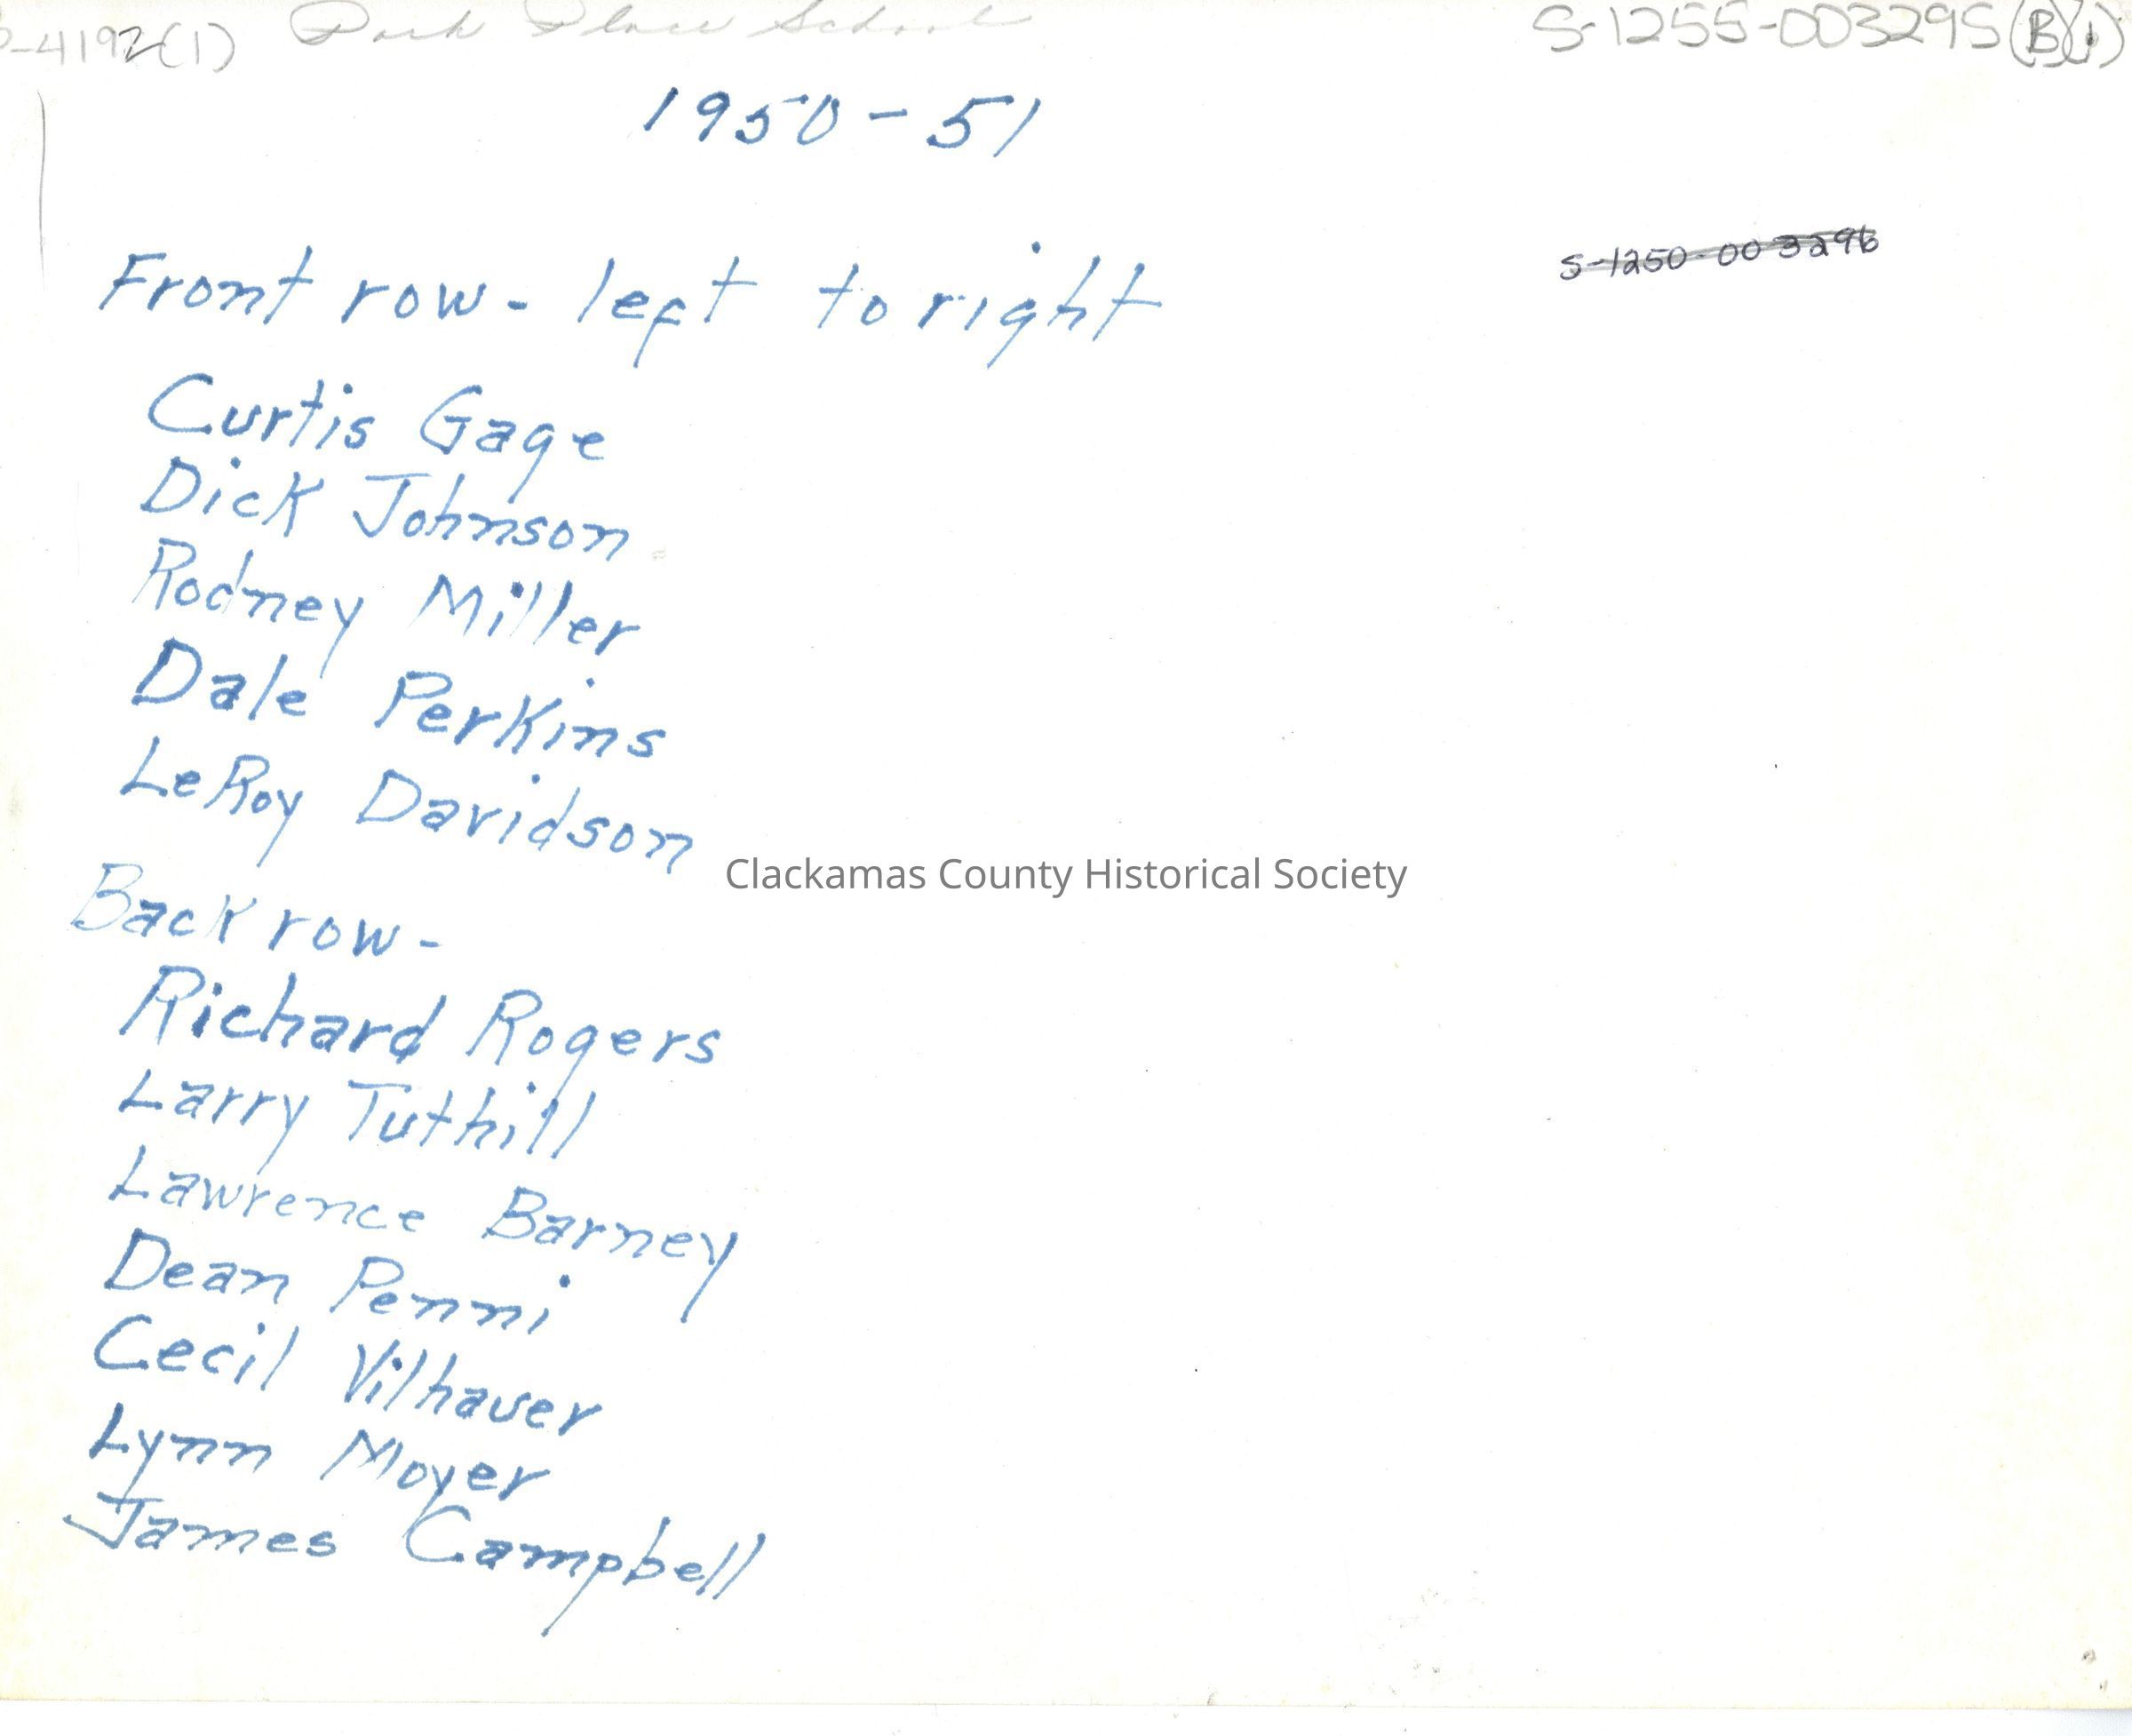 -4192(1) Park Place School S-1255-003295(B)(1)
1950-51
S-1250-003296
Front row - left to right
Curtis Gage
Dick Johnson
Rodney Miller
Dale Perkins
LeRoy Davidson
Clackamas County Historical Society
Back row -
Richard Rogers
Larry Tuthill
Lawrence Barney
Dean Penni
Cecil Vilhauer
Lynn Moyer
James Campbell